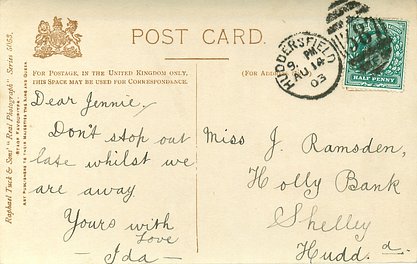 POST CARD.
FOR POSTAGE, IN THE UNITED KINGDOM ONLY,
THIS SPACE MAY BE USED FOR CORRESPONDENCE.
(FOR ADD
HUDDERSFIELD
9. PM
AU 14
03
HALF PENNY
Raphael Tuck & Sons' "Real Photograph" Series 5053.
Dear Jennie,
Don't stop out
late whilst we
are away.
Yours with
Love
Ida
Miss J. Ramsden,
Holly Bank
Shelley
Hudd.d.